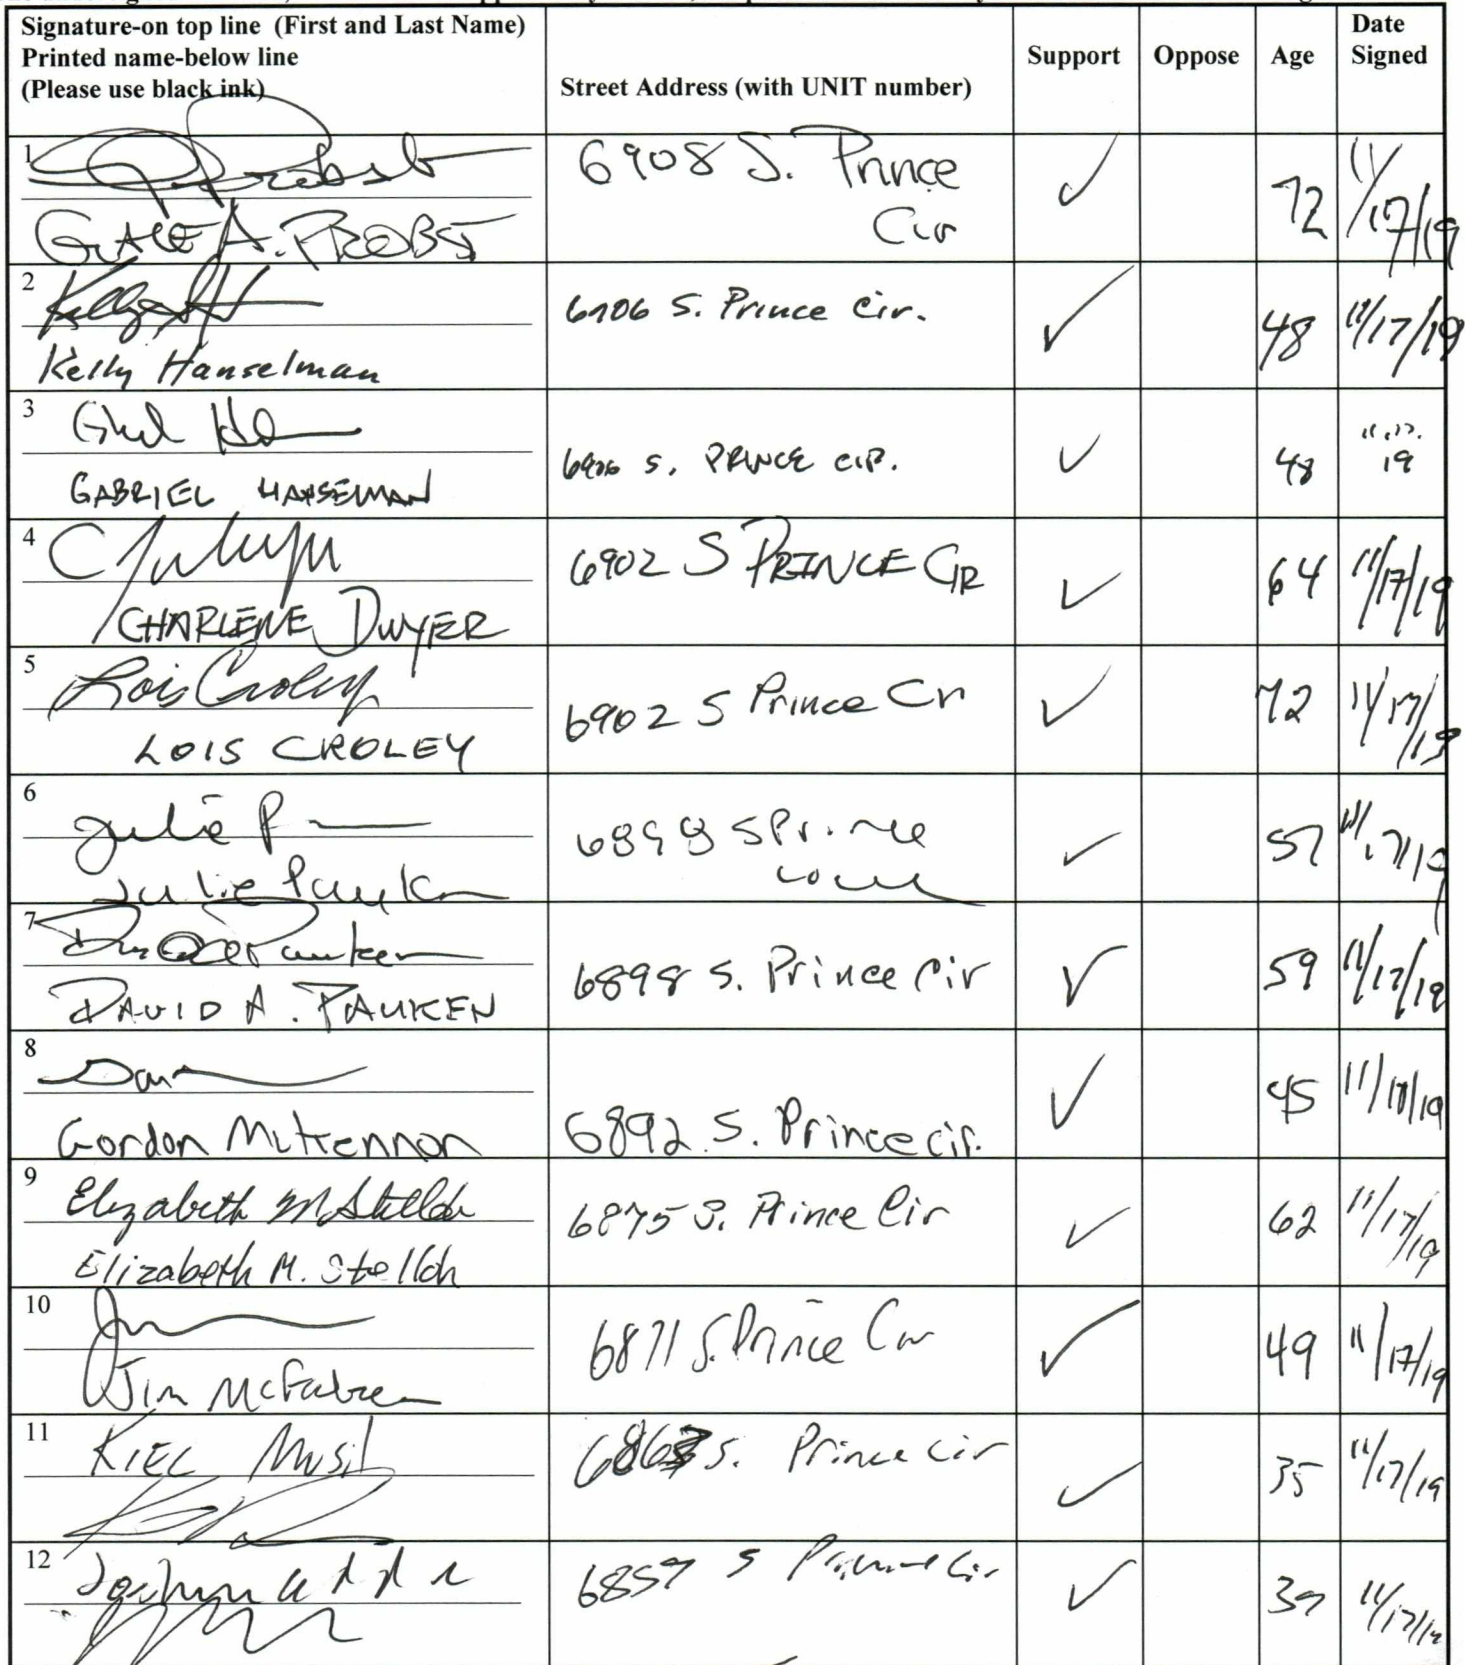 Signature-on top line (First and Last Name)
Printed name-below line
(Please use black ink)
Street Address (with UNIT number)
Support
Oppose
Age
Date
Signed
1
Probst
GRACE A. PROBST
6908 S. Prince
Cir
72
11/17/19
2
Kelly
Kelly Hanselman
6906 S. Prince Cir.
48
11/17/19
3
GABRIEL HANSELMAN
6906 S. PRINCE CIR.
48
11.17.
19
4
CHARLENE DWYER
6902 S PRINCE CIR
64
11/17/19
5
Lois Croley
LOIS CROLEY
6902 S Prince Cir
72
11/17/19
6
Julie P
Julie Pauken
6898 S Prince
57
11/17/19
7
Pauken
DAVID A. PAUKEN
6898 S. Prince Cir
59
11/17/19
8
Gordon McKennon
6892 S. Prince cir.
45
9
Elizabeth M Stelloh
Elizabeth M. Stelloh
6875 S. Prince Cir
62
11/17/19
10
Jim
6871 S. Prince Cir
49
11/17/19
11
KIEL Musil
S. Prince Cir
35
11/17/19
12
S Prince Cir
11/17/19